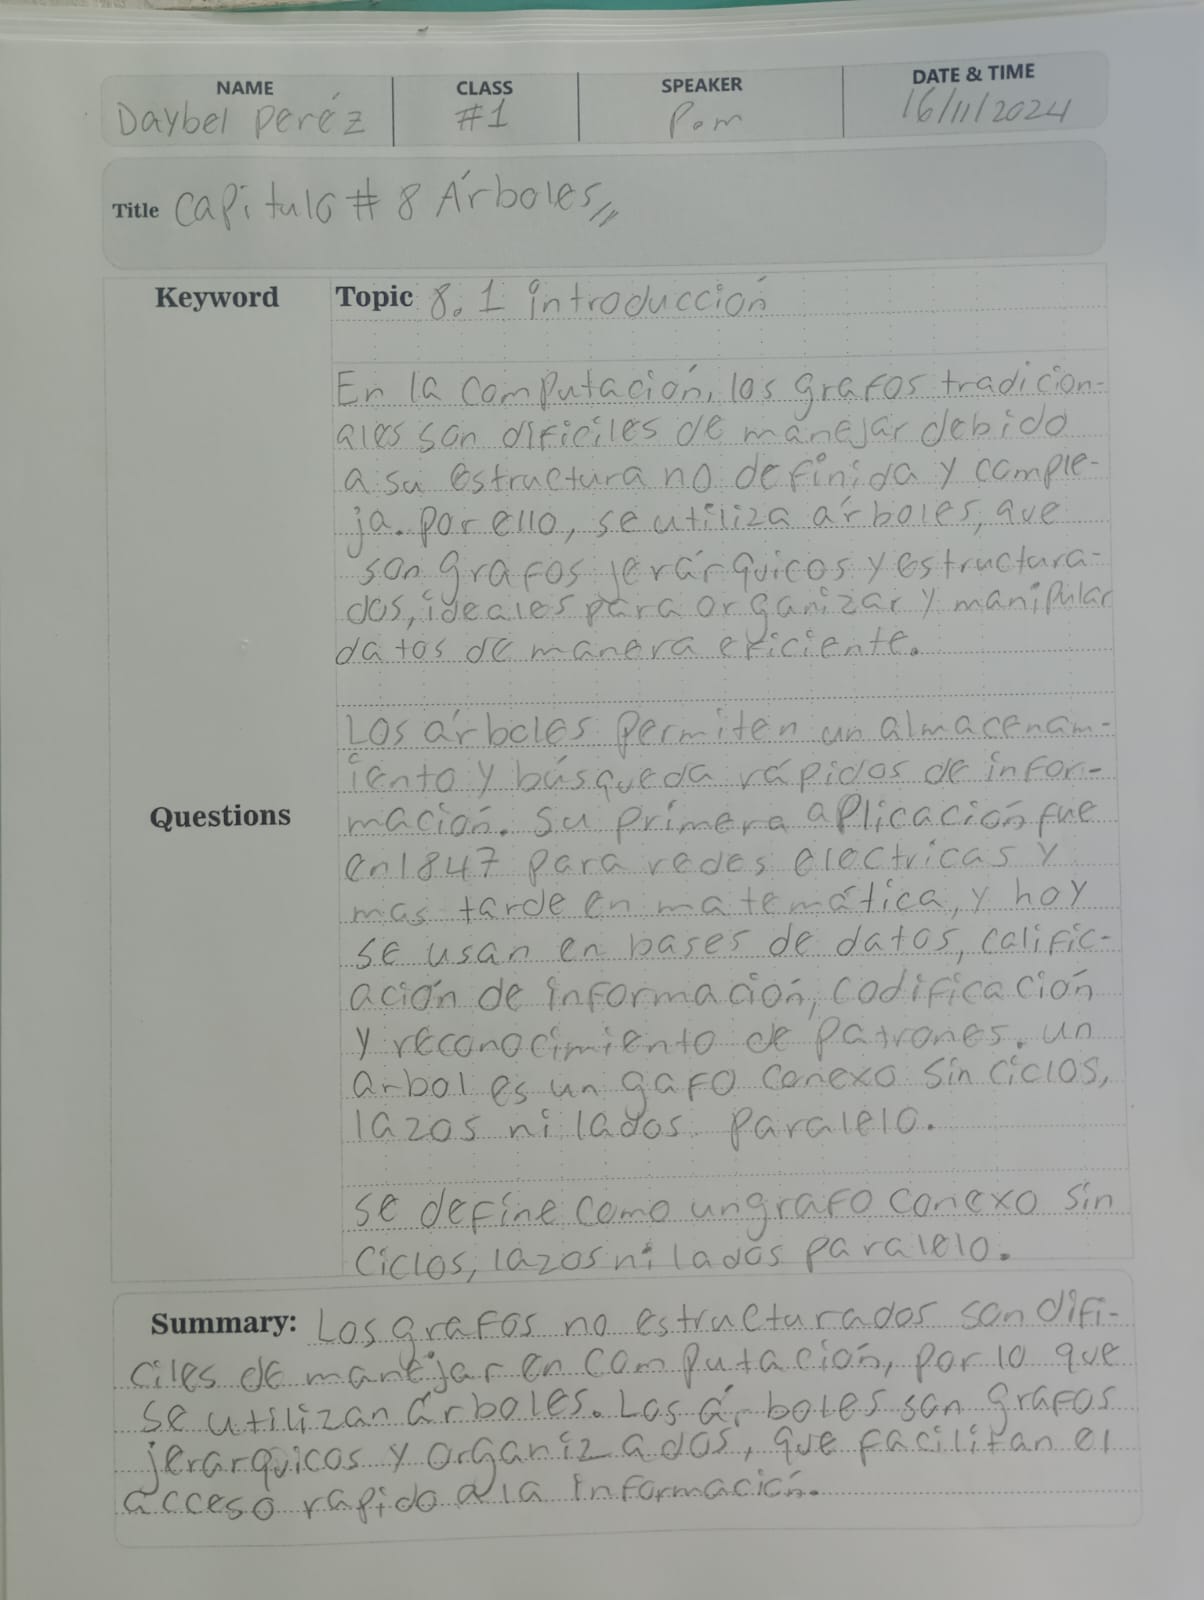 NAME CLASS SPEAKER DATE & TIME
Daybel Peréz #1 P.m 16/11/2024
Title Capitulo # 8 Árboles,,
Keyword Topic 8.1 introducción
En la computación, los grafos tradicion-
ales son dificiles de manejar debido
a su estructura no definida y comple-
ja. por ello, se utiliza árboles, que
son grafos jerárquicos y estructura-
dos, ideales para organizar y manipular
datos de manera eficiente.
Los árboles permiten un almacenam-
iento y búsqueda rápidos de infor-
Questions mación. Su primera aplicación fue
en 1847 para redes electricas y
mas tarde en matemática, y hoy
se usan en bases de datos, calific-
ación de información, codificación
y reconocimiento de patrones. un
arbol es un gafo conexo sin ciclos,
lazos ni lados paralelo.
se define como un grafo conexo sin
ciclos, lazos ni lados paralelo.
Summary: Los grafos no estructurados son difi-
ciles de manejar en computación, por lo que
se utilizan árboles. Los árboles son grafos
jerarquicos y organizados, que facilitan el
acceso rapido a la información.